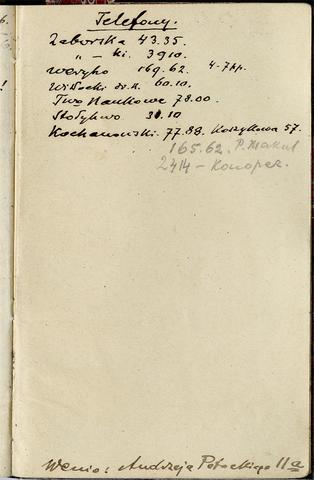 Telefony.
Zaborska 43.35.
„ – ki. 3910.
Weryho 169.62. 4-7pp.
Witocki dr. K. 60.10.
Two Naukowe 78.00.
30.10
Kochanowski. 77.88. Koszykowa 57.
165.62. P. Makul
2414 – Konopcz.
Wenio: Andrzeja Potockiego 11a